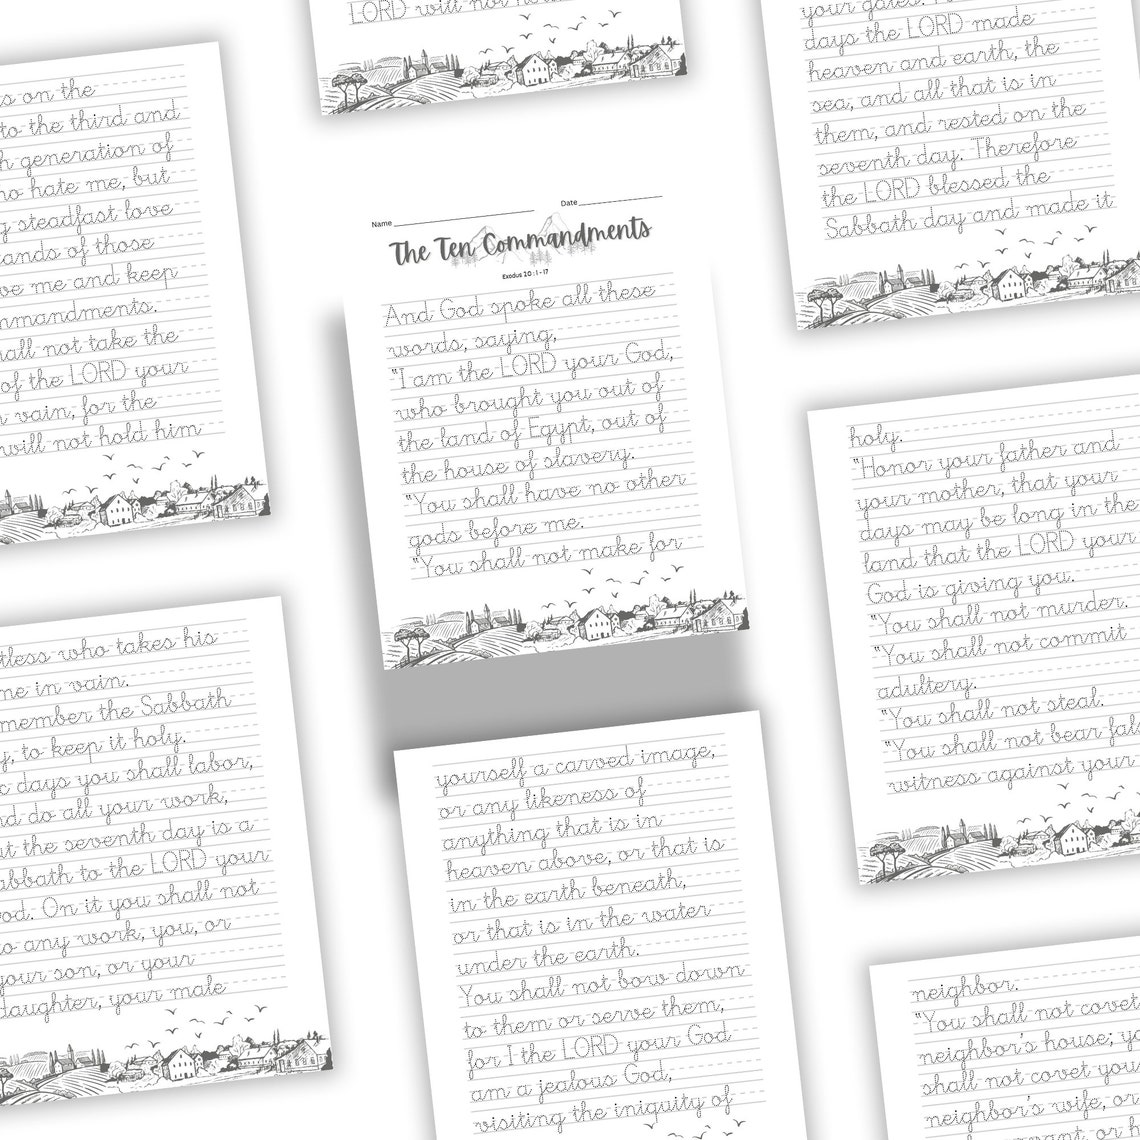 LORD will not
s on the
to the third and
generation of
who hate me, but
steadfast love
ands of those
me and keep
mmandments.
all not take the
of the LORD your
vain, for the
will not hold him
tless who takes his
me in vain.
member the Sabbath
y, to keep it holy.
days you shall labor,
nd do all your work,
ut the seventh day is a
abbath to the LORD your
od. On it you shall not
o any work, you, or
your son, or your
daughter, your male
Name
Date
The Ten Commandments
Exodus 20:1-17
And God spoke all these
words, saying,
"I am the LORD your God,
who brought you out of
the land of Egypt, out of
the house of slavery.
"You shall have no other
gods before me.
"You shall not make for
yourself a carved image,
or any likeness of
anything that is in
heaven above, or that is
in the earth beneath,
or that is in the water
under the earth.
You shall not bow down
to them or serve them,
for I the LORD your God
am a jealous God,
visiting the iniquity of
your gates.
days the LORD made
heaven and earth, the
sea, and all that is in
them, and rested on the
seventh day. Therefore
the LORD blessed the
Sabbath day and made it
holy.
"Honor your father and
your mother, that your
days may be long in the
land that the LORD your
God is giving you.
"You shall not murder.
"You shall not commit
adultery.
"You shall not steal.
"You shall not bear fals
witness against your
neighbor.
"You shall not covet
neighbor's house; yo
shall not covet you
neighbor's wife, or
or h